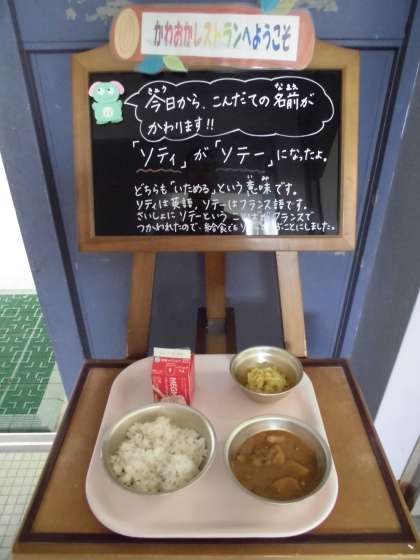 かわおかレストランへようこそ
きょう
なまえ
今日から、こんだての名前が
かわります!!
「ソティ」が「ソテー」になったよ。
いみ
どちらも「いためる」という意味です。
ソティは英語、ソテーはフランス語です。
さいしょに ソテーという ことばが フランスで
つかわれたので、給食でも ことにしました。
MEG